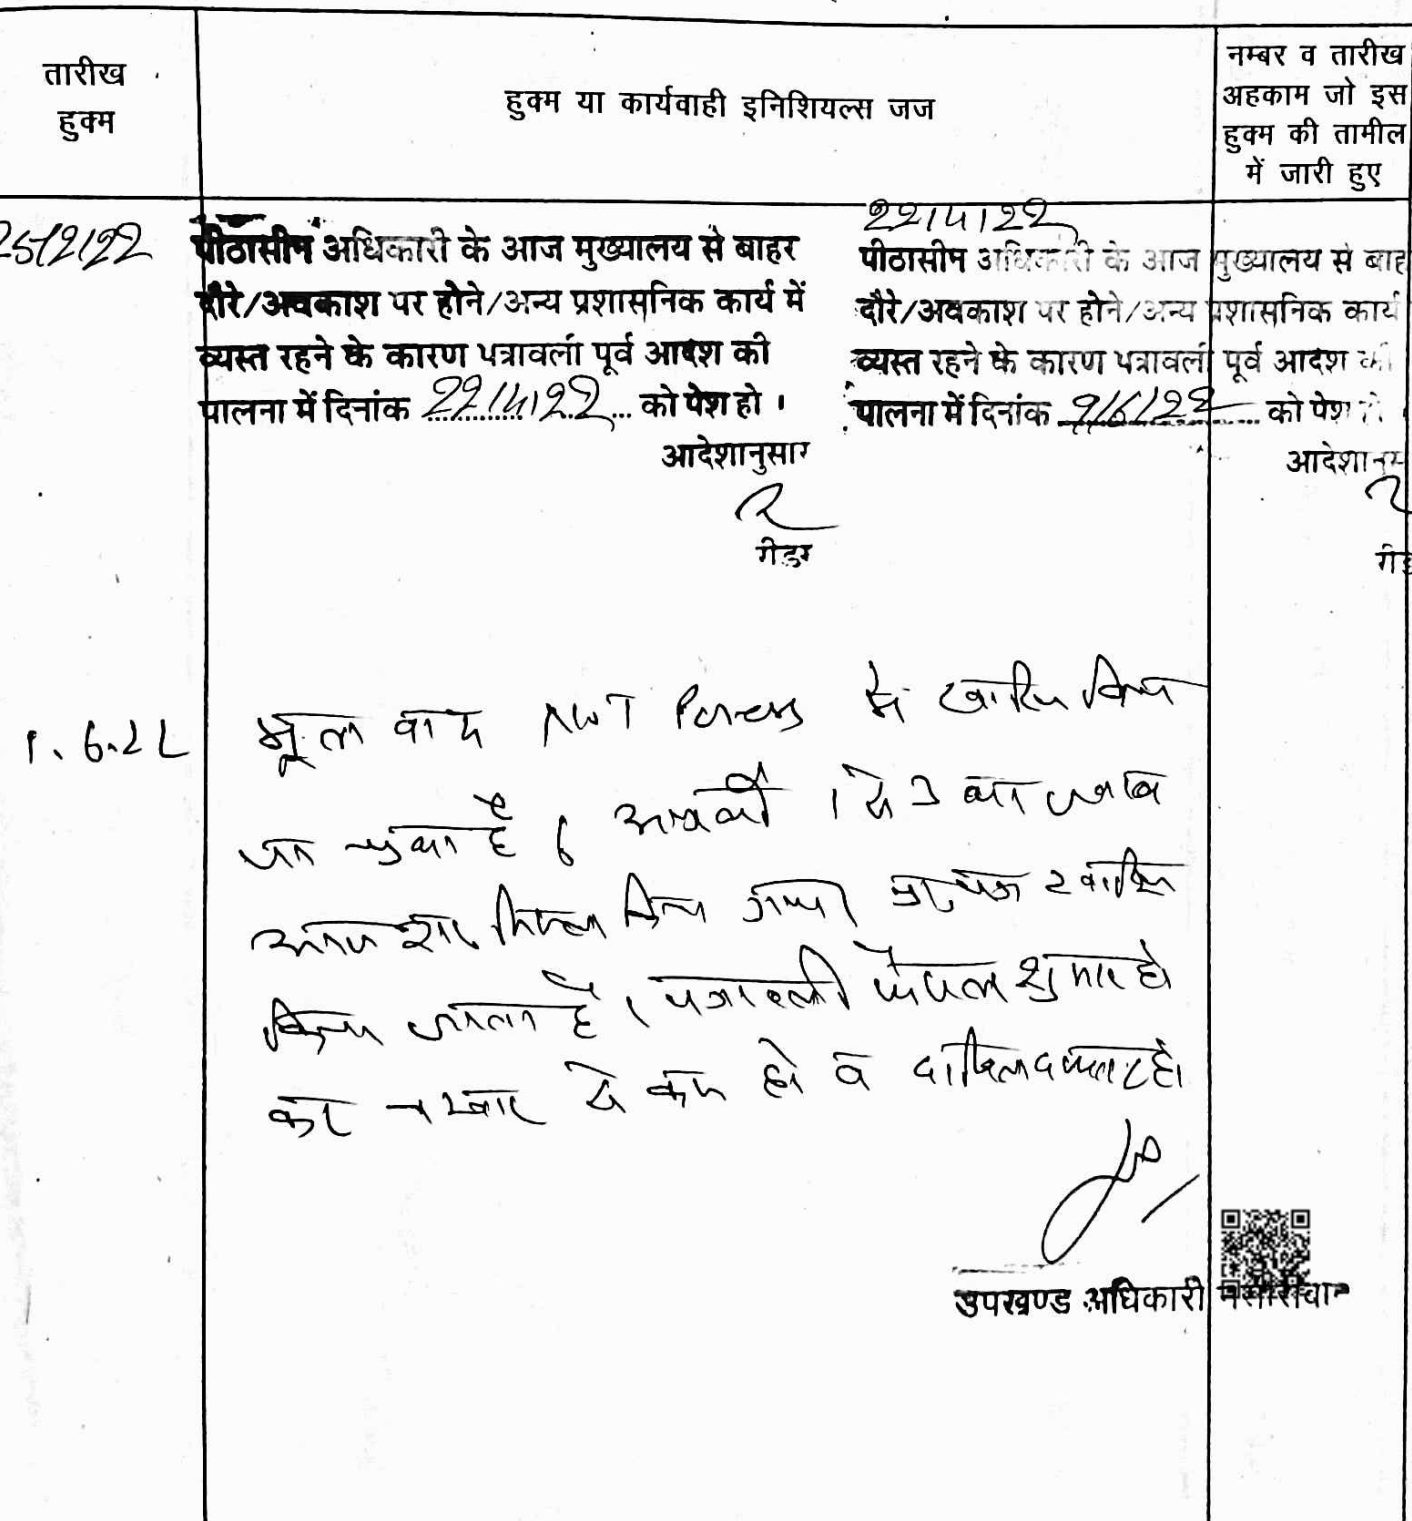 तारीख
हुक्म
हुक्म या कार्यवाही इनिशियल्स जज
नम्बर व तारीख
अहकाम जो इस
हुक्म की तामील
में जारी हुए
25/2/22
पीठासीन अधिकारी के आज मुख्यालय से बाहर
दौरे/अवकाश पर होने/अन्य प्रशासनिक कार्य में
व्यस्त रहने के कारण पत्रावली पूर्व आदेश की
पालना में दिनांक 22/4/22 को पेश हो ।
आदेशानुसार
रीडर
22/4/22
पीठासीन अधिकारी के आज मुख्यालय से बाह
दौरे/अवकाश पर होने/अन्य प्रशासनिक कार्य
व्यस्त रहने के कारण पत्रावली पूर्व आदेश की
पालना में दिनांक 9/6/22 को पेश हो
आदेशानुस
रीड
6.22
मूल वाद Not Press में खारिज किया
जा चुका है । अप्रार्थी 1 से 3 का जवाब
किया गया । खारिज
किया जाता है । पत्रावली फैसल शुमार हो
कर नम्बर से कम हो व दाखिल दफ्तर हो ।
उपखण्ड अधिकारी नसीराबाद